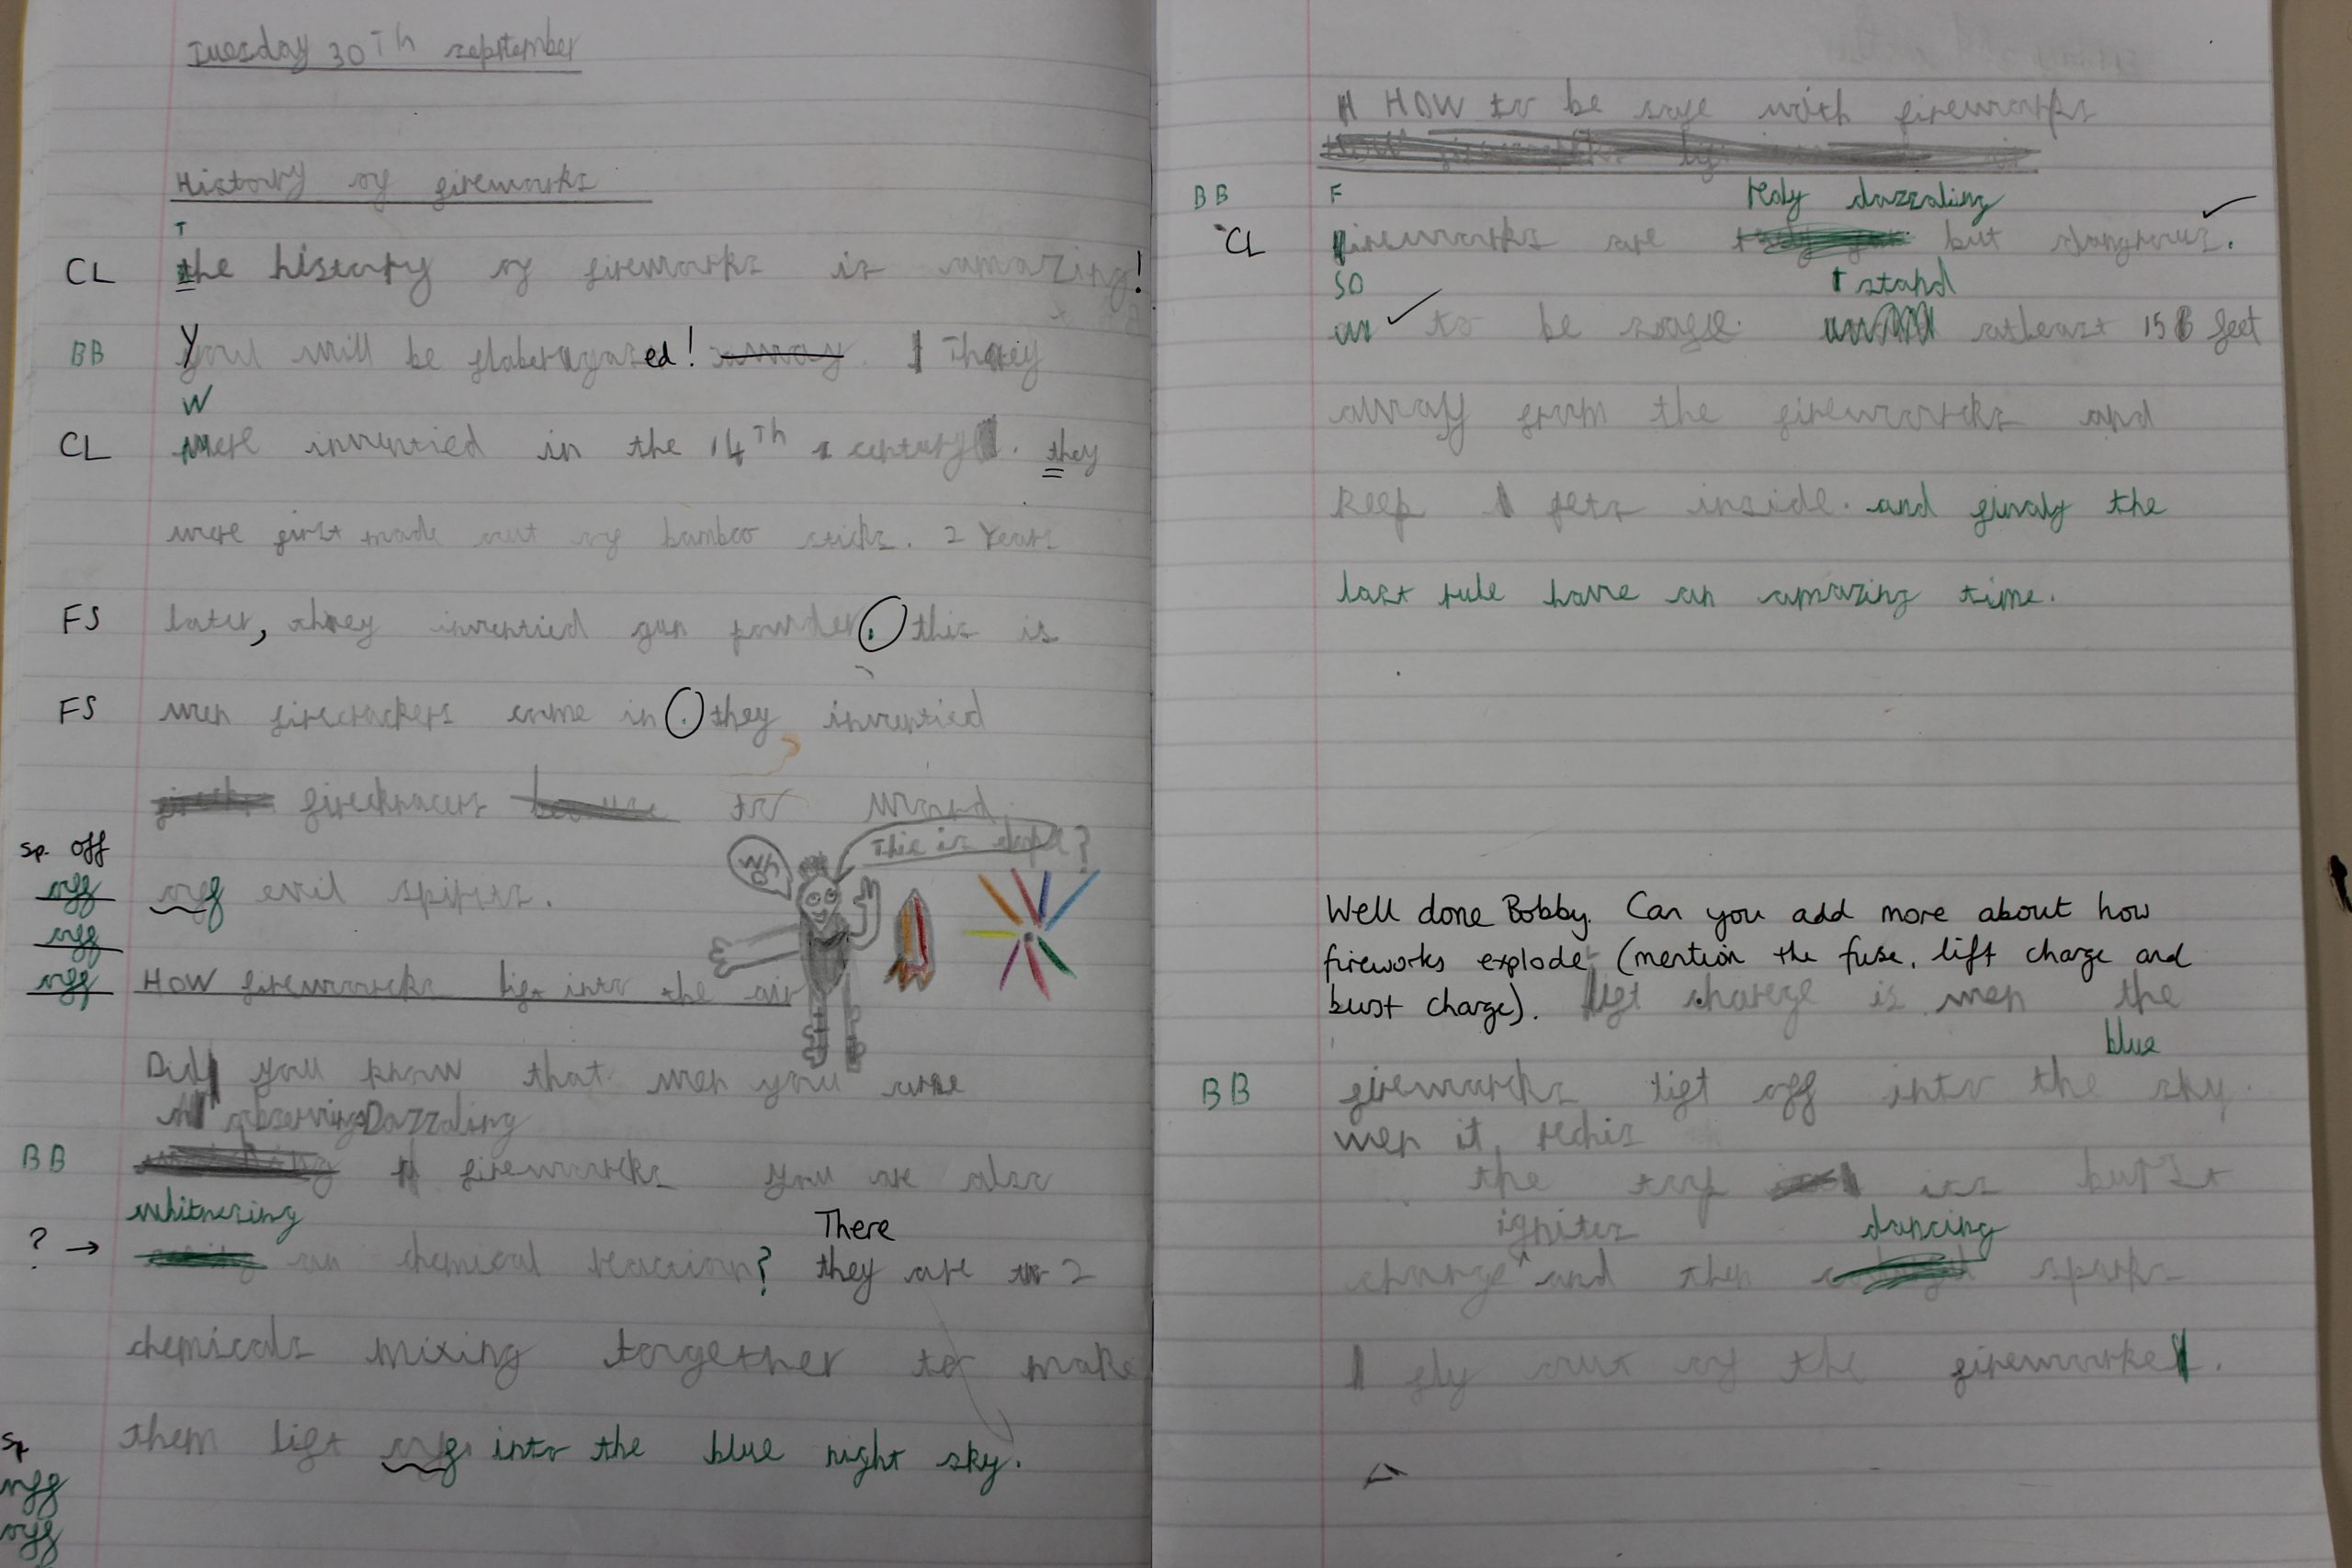 Tuesday 30Th september
History of fireworks
T
CL the history of fireworks is amazing!
BB Youl will be flaberggased! away They
W
CL were inventied in the 14Th century. they
were first made out of bamboo sticks. 2 Years
FS later, they inventied gun powder. this is
FS wen firecrackers came in. they inventied
fireckracers because to Ward
sp. off
off off evil spirits.
off
off How fireworcks lift into the air
Wow
This is dope?
Did you know that wen you are
observing Dazzaling
BB fireworcks you are also
whitnesing There
? → an chemical reaction? they are 2
chemicals mixing torgether to make
them lift off into the blue night sky.
Sp
off
off
H HOW to be safe with fireworks
BB F realy dazzaling
CL fireworks are but dangrous.
SO stand
to be safe. atleast 15 feet
away from the fireworcks and
keep pets inside. and finaly the
last rule have an amazing time.
Well done Bobby. Can you add more about how
fireworks explode (mention the fuse, lift charge and
burst charge). lift charge is wen the
blue
BB fireworcks lift off into the sky.
wen it rechis
the top its burst
ignites dancing
charge ^ and then sparks
fly out of the firework.